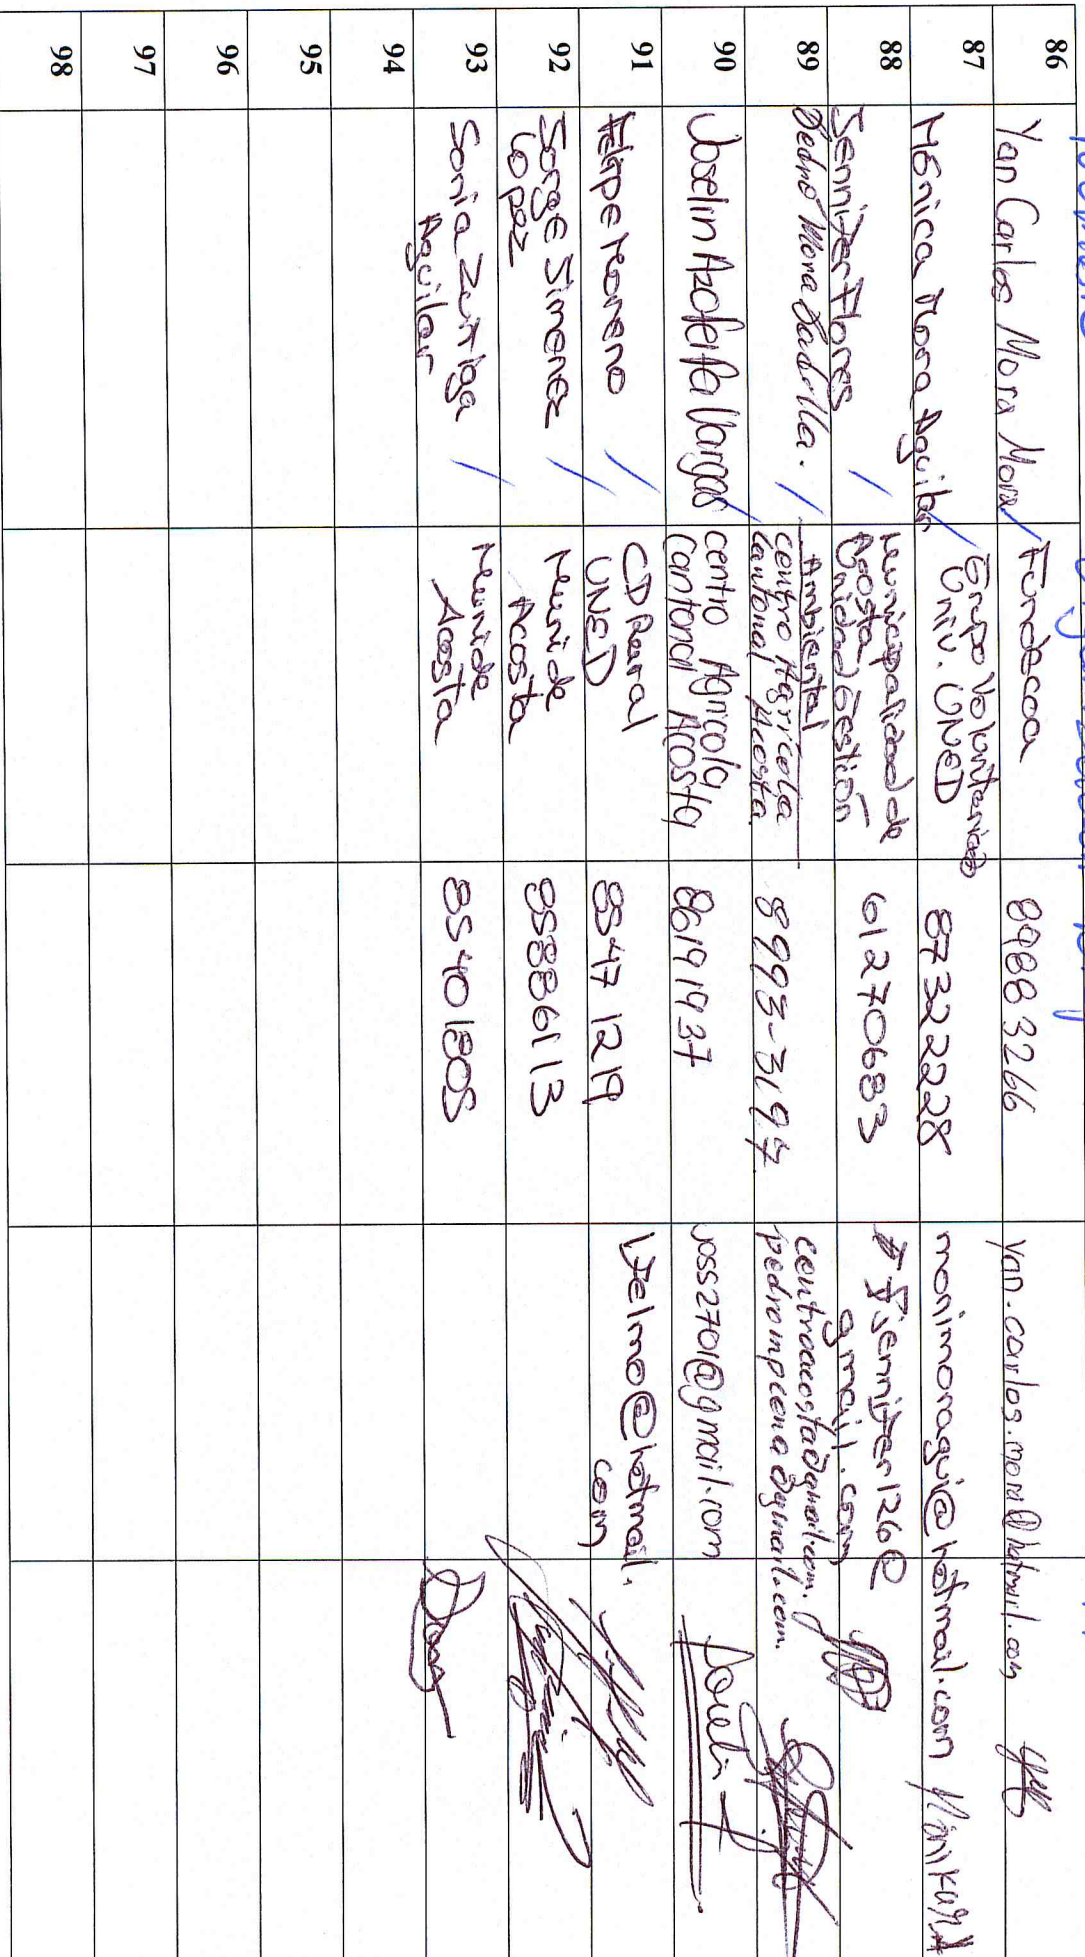 86
Yan Carlos Mora Mora
Fundecoa
8988 3266
yan.carlos.mora@hotmail.com
87
Mónica Mora Aguilar
Grupo Voluntariado
Univ. UNED
87322228
monimoragui@hotmail.com
88
Jennifer Flores
Municipalidad de
Acosta
Unidad Gestión
Ambiental
61270683
gmail.com
89
Pedro Mora Badilla.
centro Agrícola
Cantonal Acosta
centroacosta@gmail.com.
90
Joselin Azofeifa Vargas
centro Agricola
Cantonal Acosta
86191937
joss2701@gmail.com
91
Felipe Moreno
CD Rural
UNED
8547 1219
com
92
Jorge Jimenez
Lopez
Muni de
Acosta
93
Sonia Zuñiga
Aguilar
Muni de
Acosta
94
95
96
97
98